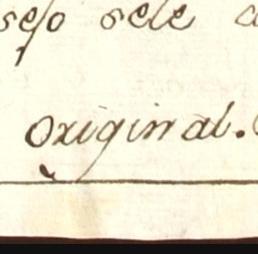 sejo sele
Original.